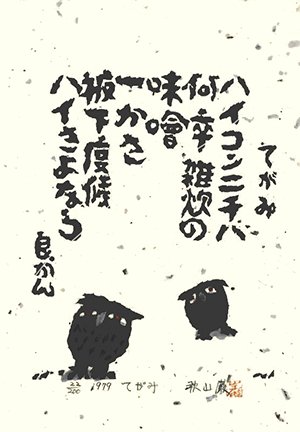 てがみ
ハイコンニチバ
何卒雑炊の
味噌
一かき
被下度候
ハイさよなら
良かん
22/200 1979 てがみ 秋山巌